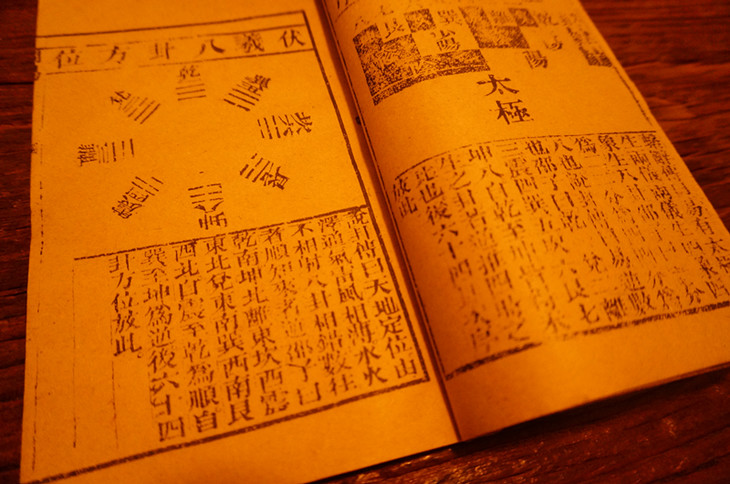 乾
巽
艮
陽
太極
繫辭傳曰易有太極
生兩儀兩儀生四象四
象生八卦邵子曰一分
爲二二分爲四四分爲
八也說卦傳曰易逆數
也邵子曰乾一兌二離
三震四巽五坎六艮七
坤八自乾至坤皆得未
生之卦若逆推四時之
比也後六十四卦次序
放此
伏羲八卦方位
乾
兌
離
震
坤
艮
坎
巽
說卦傳曰天地定位山
澤通氣雷風相薄水火
不相射八卦相錯數往
者順知來者逆邵子曰
乾南坤北離東坎西震
東北兌東南巽西南艮
西北自震至乾爲順自
巽至坤爲逆後六十四
卦方位放此